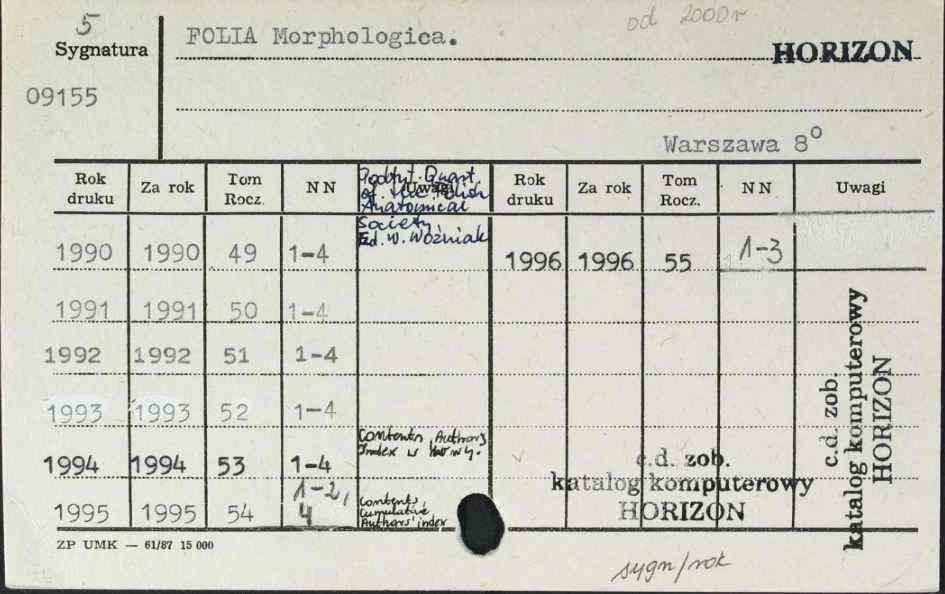 5
od 2000 r
Sygnatura
FOLIA Morphologica.
HORIZON
09155
Warszawa 8°
Rok druku Za rok Tom Rocz. NN Uwagi Rok druku Za rok Tom Rocz. NN Uwagi
Podtyt. Quart.
of the Polish
Anatomical
Society
Ed. W. Woźniak
1990 1990 49 1-4
1996 1996 55 1-3
1991 1991 50 1-4
1992 1992 51 1-4
1993 1993 52 1-4
Contents, Authors
Index w
1994 1994 53 1-4
1995 1995 54 1-2, 4
Contents,
Cumulative
Authors' index
c.d. zob.
katalog komputerowy
HORIZON
c.d. zob.
katalog komputerowy
HORIZON
ZP UMK — 61/87 15 000
sygn/rok